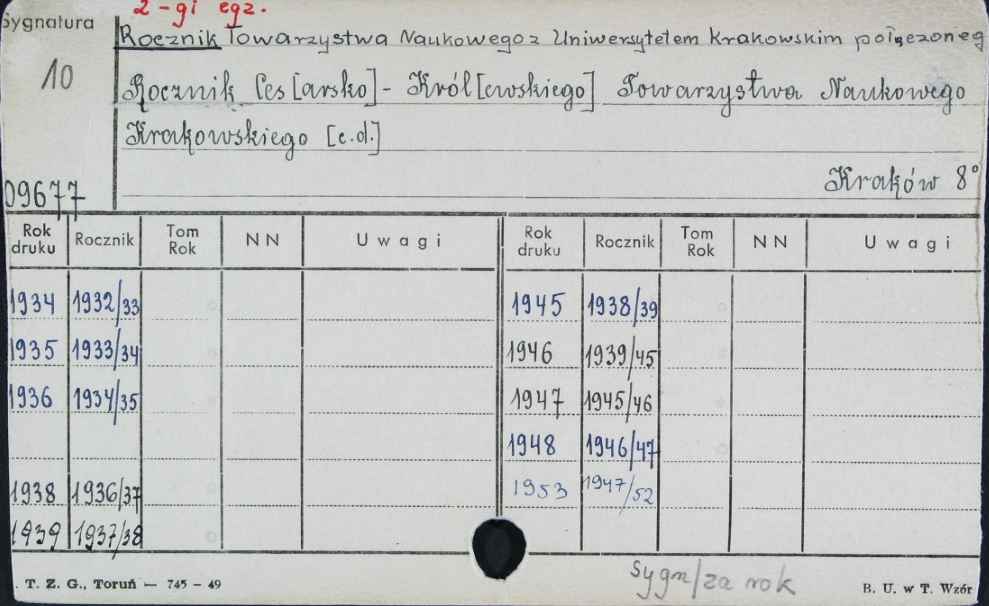 2-gi egz.
Sygnatura
Rocznik Towarzystwa Naukowego z Uniwersytetem Krakowskim połączoneg
10
Rocznik Ces[arsko]-Król[ewskiego] Towarzystwa Naukowego
Krakowskiego [c.d.]
Kraków 8°
09677
Rok druku Rocznik Tom Rok NN Uwagi Rok druku Rocznik Tom Rok NN Uwagi
1934 1932/33 1945 1938/39
1935 1933/34 1946 1939/45
1936 1934/35 1947 1945/46
1948 1946/47
1938 1936/37 1953 1947/52
1939 1937/38
Sygn/za rok
. T. Z. G., Toruń — 745 – 49 B. U. w T. Wzór